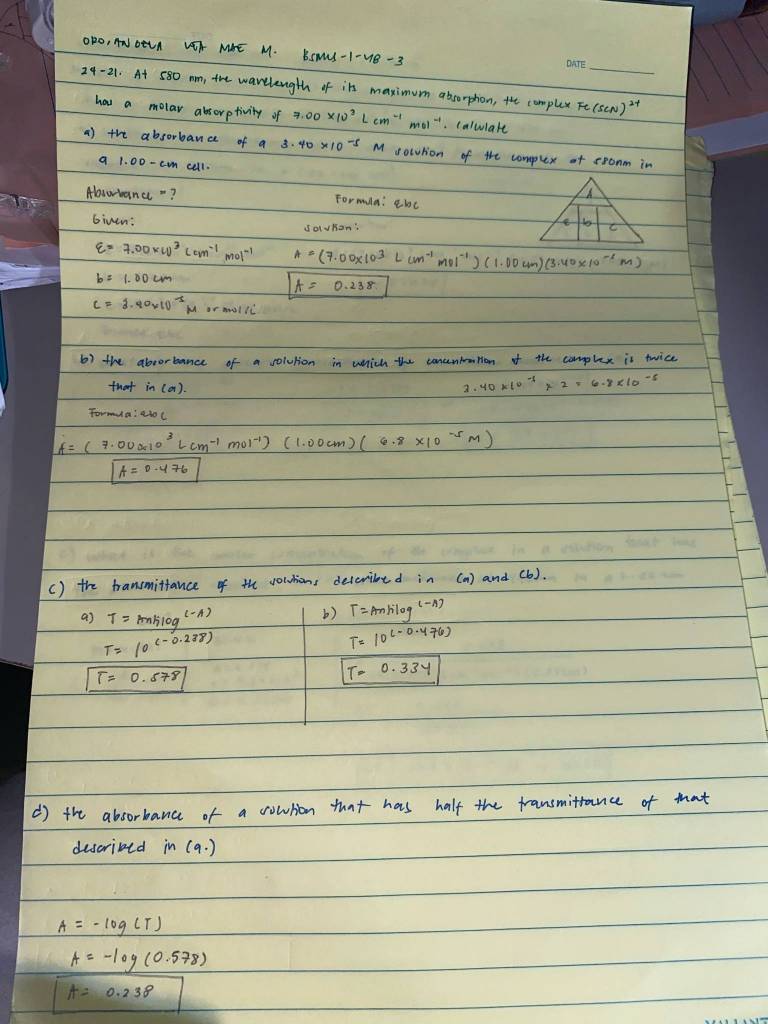 ORO, ANGELA VIA MAE M. BSMLS-1-YB-3
DATE
24-21. At 580 nm, the wavelength of its maximum absorption, the complex Fe(SCN)²⁺
has a molar absorptivity of 7.00 x10³ L cm⁻¹ mol⁻¹. Calculate
a) the absorbance of a 3.40 x10⁻⁵ M solution of the complex at 580nm in
a 1.00-cm cell.
Absorbance = ?
Formula: εbc
A
ε b c
Given:
solution:
ε = 7.00x10³ L cm⁻¹ mol⁻¹
A = (7.00x10³ L cm⁻¹ mol⁻¹) (1.00 cm)(3.40x10⁻⁵ M)
b = 1.00 cm
A = 0.238
c = 3.40x10⁻⁵ M or mol/L
b) the absorbance of a solution in which the concentration of the complex is twice
that in (a).
3.40 x10⁻⁵ x 2 = 6.8x10⁻⁵
Formula: εbc
A = ( 7.00x10³ L cm⁻¹ mol⁻¹) (1.00cm) ( 6.8 x10⁻⁵ M)
A = 0.476
c) the transmittance of the solutions described in (a) and (b).
a) T = Antilog (-A)
T= 10 (-0.238)
T= 0.578
b) T=Antilog (-A)
T= 10 (-0.476)
T= 0.334
d) the absorbance of a solution that has half the transmittance of that
described in (a.)
A = -log (T)
A = -log (0.578)
A = 0.238